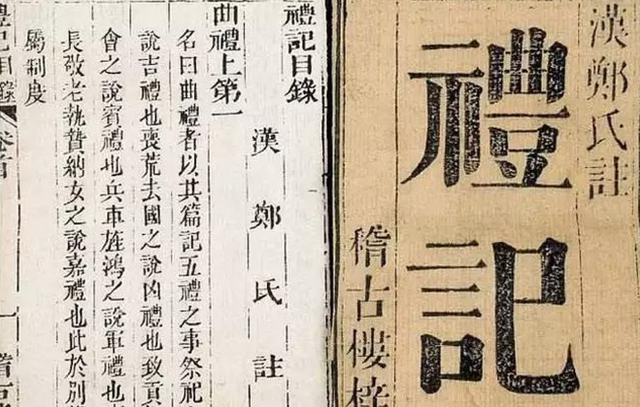 漢鄭氏註
禮記
稽古樓梓
禮記目錄
漢鄭氏註
曲禮上第一
名曰曲禮者以其篇記五禮之事祭祀
說吉禮也喪荒去國之說凶禮也致貢
會之說賓禮也兵車旌鴻之說軍禮也
長敬老執贄納女之說嘉禮也此於別
屬制度
禮記目錄
卷首
一